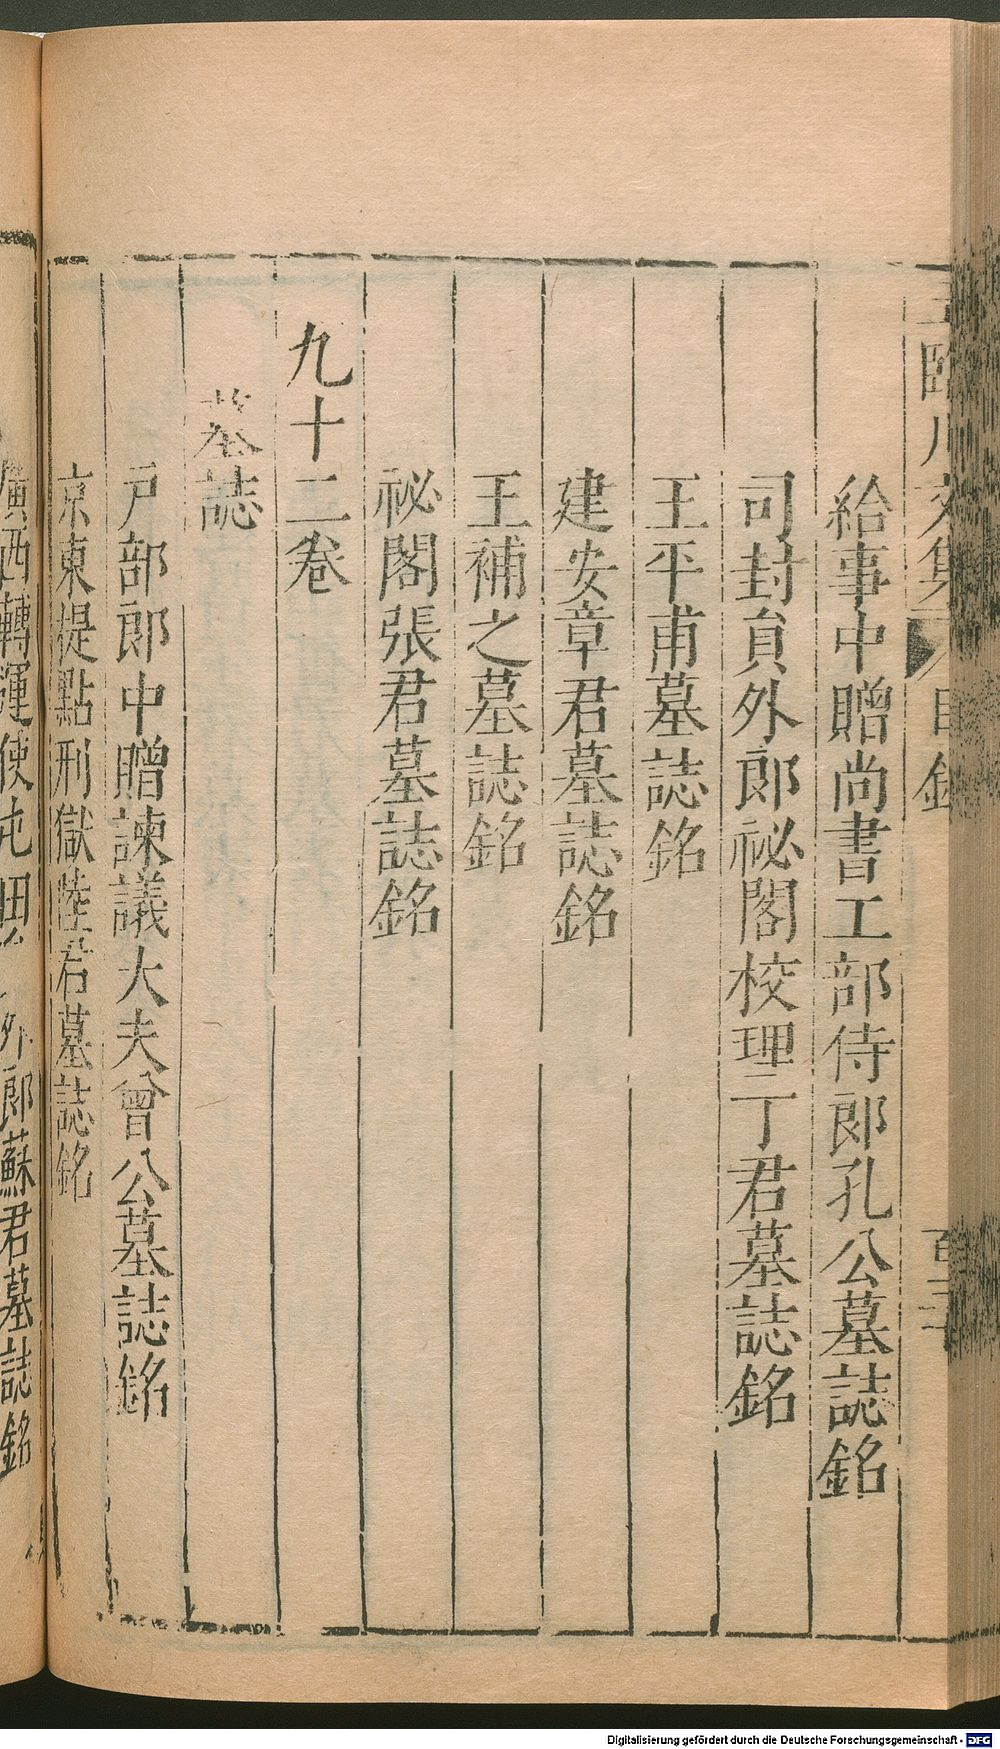 王臨川文集 目錄
給事中贈尚書工部侍郎孔公墓誌銘
司封貟外郎祕閣校理丁君墓誌銘
王平甫墓誌銘
建安章君墓誌銘
王補之墓誌銘
祕閣張君墓誌銘
九十二卷
墓誌
戸部郎中贈諫議大夫曾公墓誌銘
京東提點刑獄陸君墓誌銘
廣西轉運使屯田 外郎蘇君墓誌銘
Digitalisierung gefördert durch die Deutsche Forschungsgemeinschaft - DFG